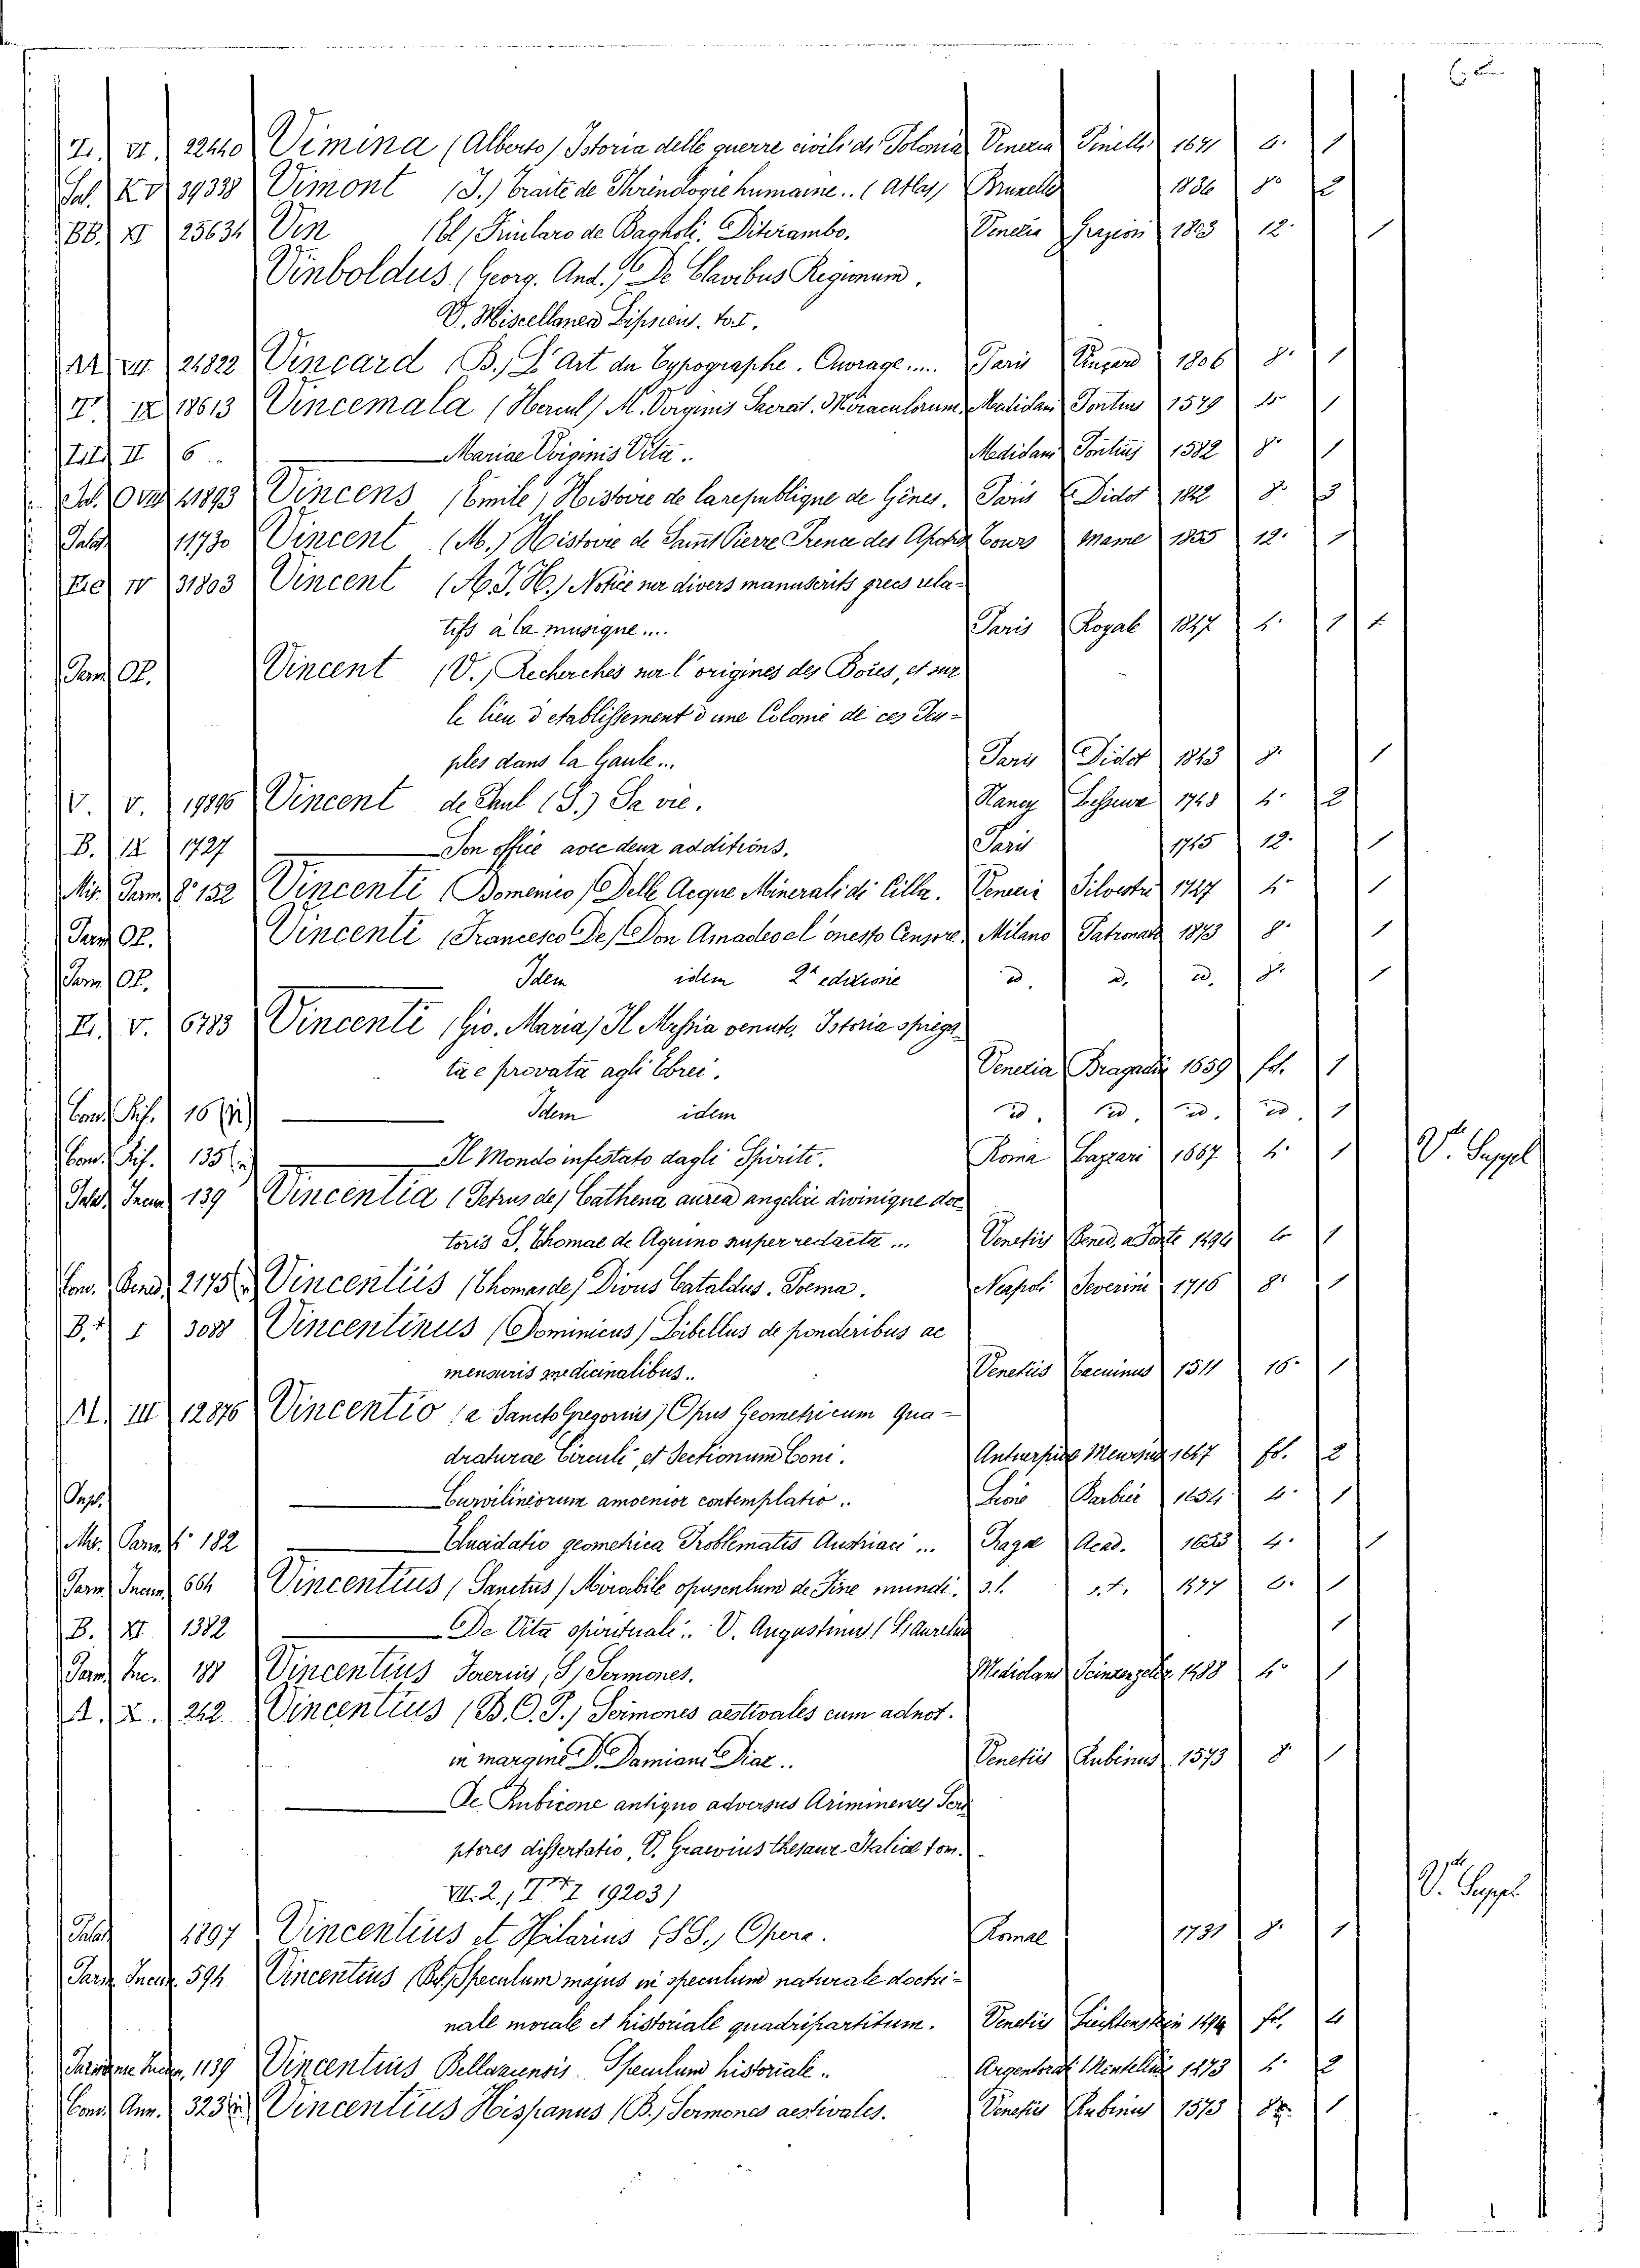 Z. VI. 22440 Vimina (Alberto) Istoria delle guerre civili di Polonia Venezia Pinelli 1671 4. 1
Sal. XV 39338 Vimont (J.) Traité de Phrénologie humaine.. (Atlas) Bruxelles 1836 8° 2
BB. XI 25634 Vin (El) Friularo de Bagnoli. Ditirambo. Venezia Graziosi 1803 12. 1
Vinboldus (Georg. And.) De Clavibus Regionum.
V. Miscellanea Lipsiens. to. I.
21822 Vincard B.) L'Art du Typographe. Ouvrage.... Paris Vincard 1806 8. 1
IX 18613 Vincemala (Hercul) M. Virginis Sacrat. Miraculorum. Mediolani Pontius 1579 4° 1
II 6.. Mariae Virginis Vita.. Mediolani Pontius 1582 8° 1
41893 Vincens (Emile) Histoire de la republique de Gênes. Paris Didot 1842 8° 3
Palat 11730 Vincent (M.) Histoire de Saint Pierre Prince des Apotres Tours Mame 1855 12. 1
IV 31803 Vincent (A. J. H.) Notice sur divers manuscrits grecs rela-
tifs à la musique.... Paris Royale 1847 4. 1
Parm OP. Vincent (V.) Recherches sur l'origines des Boies, et sur
le lieu d'etablissement d'une Colonie de ces Peu-
ples dans la Gaule... Paris Didot 1843 8. 1
V. V. 19896 Vincent de Paul (S.) Sa vie. Nancy 1748 4. 2
B. IX 1727 Son office avec deux additions. Paris 1745 12. 1
Mis. Parm. 8° 152 Vincenti (Domenico) Delle Acque Minerali di Cilla. Venezia Silvestri 1747 4° 1
Parm OP. Vincenti (Francesco De) Don Amadeo el onesto Censore. Milano Patronato 1873 8. 1
Parm. OP. Idem idem 2ª edizione id. id. id. 8. 1
V. 6783 Vincenti (Gio. Maria) Il Messia venuto. Istoria spiega-
ta e provata agli Ebrei. Venezia Bragadin 1659 fol. 1
16 Idem idem id. id. id. id. 1
135 Il Mondo infestato dagli Spiriti. Roma Lazzari 1667 4. 1 V. Suppl
Palat. Incun 139 Vincentia (Petrus de) Cathena aurea angelici divinique doc-
toris S. Thomae de Aquino super redacta ... Venetiis Bened. a Fonte 1494 4° 1
2175 Vincentiis (Thomas de) Divus Cataldus. Poema. Neapoli Severini 1716 8. 1
B.+ I 3088 Vincentinus (Dominicus) Libellus de ponderibus ac
mensuris medicinalibus.. Venetiis Tacuinus 1511 16. 1
III 12876 Vincentio (a Sancto Gregorius) Opus Geometricum Qua-
draturae Circuli et Sectionum Coni. Antuerpiae Meursius 1647 fol. 2
Curvilineorum amoenior contemplatio.. Lione Barbier 1654 4. 1
Mis. Parm. f° 182 Elucidatio geometrica Problematis Austriaci ... Pragae Acad. 1623 4. 1
Parm Incun 664 Vincentius (Sanctus) Mirabile opusculum de Fine mundi. s. l. s. t. 1477 6. 1
B. XI 1382 De Vita spirituali.. V. Augustinus (S. Aurelius 1
Parm Inc. 188 Vincentius Fererius, S) Sermones. Mediolani Scinzenzeler 1488 4° 1
A. X. 242. Vincentius (B. O. P.) Sermones aestivales cum adnot.
in margine D. Damiani Diaz.. Venetiis Rubinus 1573 8 1
De Rubicone antiquo adversus Ariminenses Scri-
ptores dissertatio, V. Graevius thesaur. Italiae tom.
VII. 2., 19203) V. Suppl
Palat 1897 Vincentius et Hilarius (SS.) Opera. Romae 1731 8. 1
Parm Incun. 594 Vincentius Speculum majus in speculum naturale doctri-
nale morale et historiale quadripartitum. Venetiis Liechtenstein 1494 fol. 4
1139 Vincentius Bellavensis. Speculum historiale.. Argentorat Mintellin 1473 4. 2
323 Vincentius Hispanus (B.) Sermones aestivales. Venetiis Rubinus 1573 8° 1